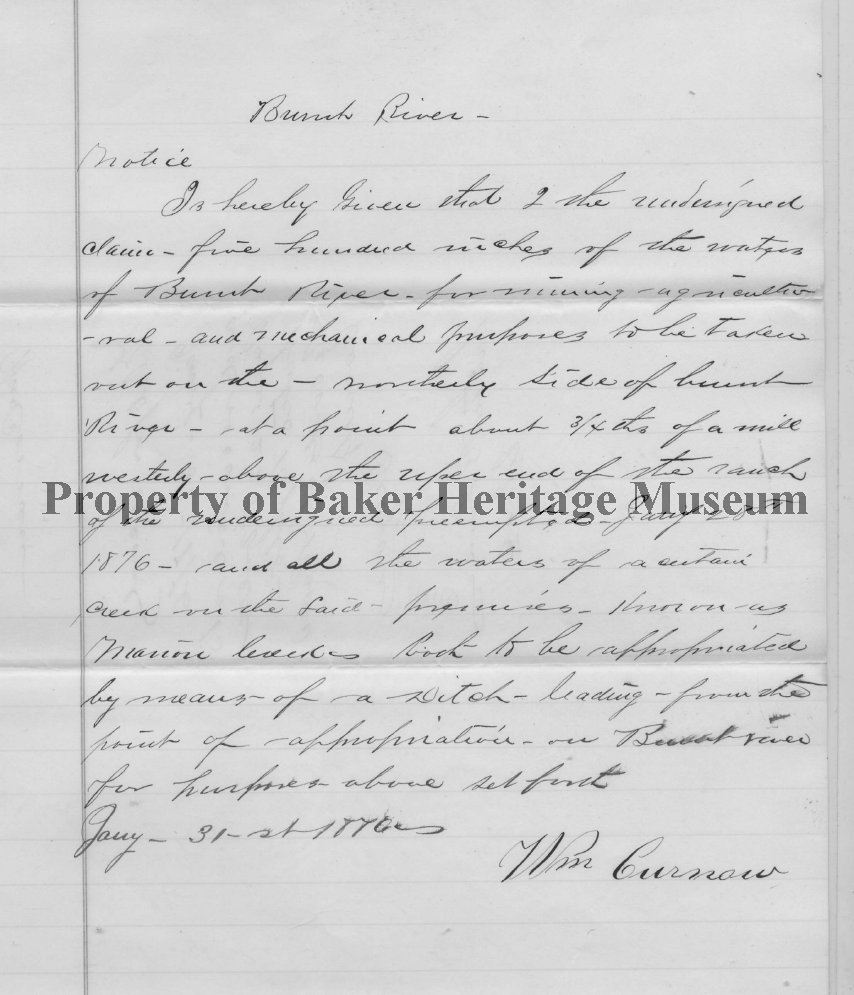 Burnt River -
Notice
Is hereby Given that I the undersigned
claim - five hundred inches of the waters
of Burnt River - for mining - agricultu
- ral - and mechanical purposes to be taken
out on the - northerly Side of burnt
River - at a point about 3/4ths of a mill
westerly - above the uper end of the ranch
Property of Baker Heritage Museum
of the undersigned preempted - Jany 28th
1876 - and all the waters of a certain
creek on the Said - premises - Known as
Marion creek - both to be appropriated
by means of a Ditch - leading - from the
point of appropriation - on Burnt river
for purposes above set forth
Jany - 31-st 1876
Wm Curnow